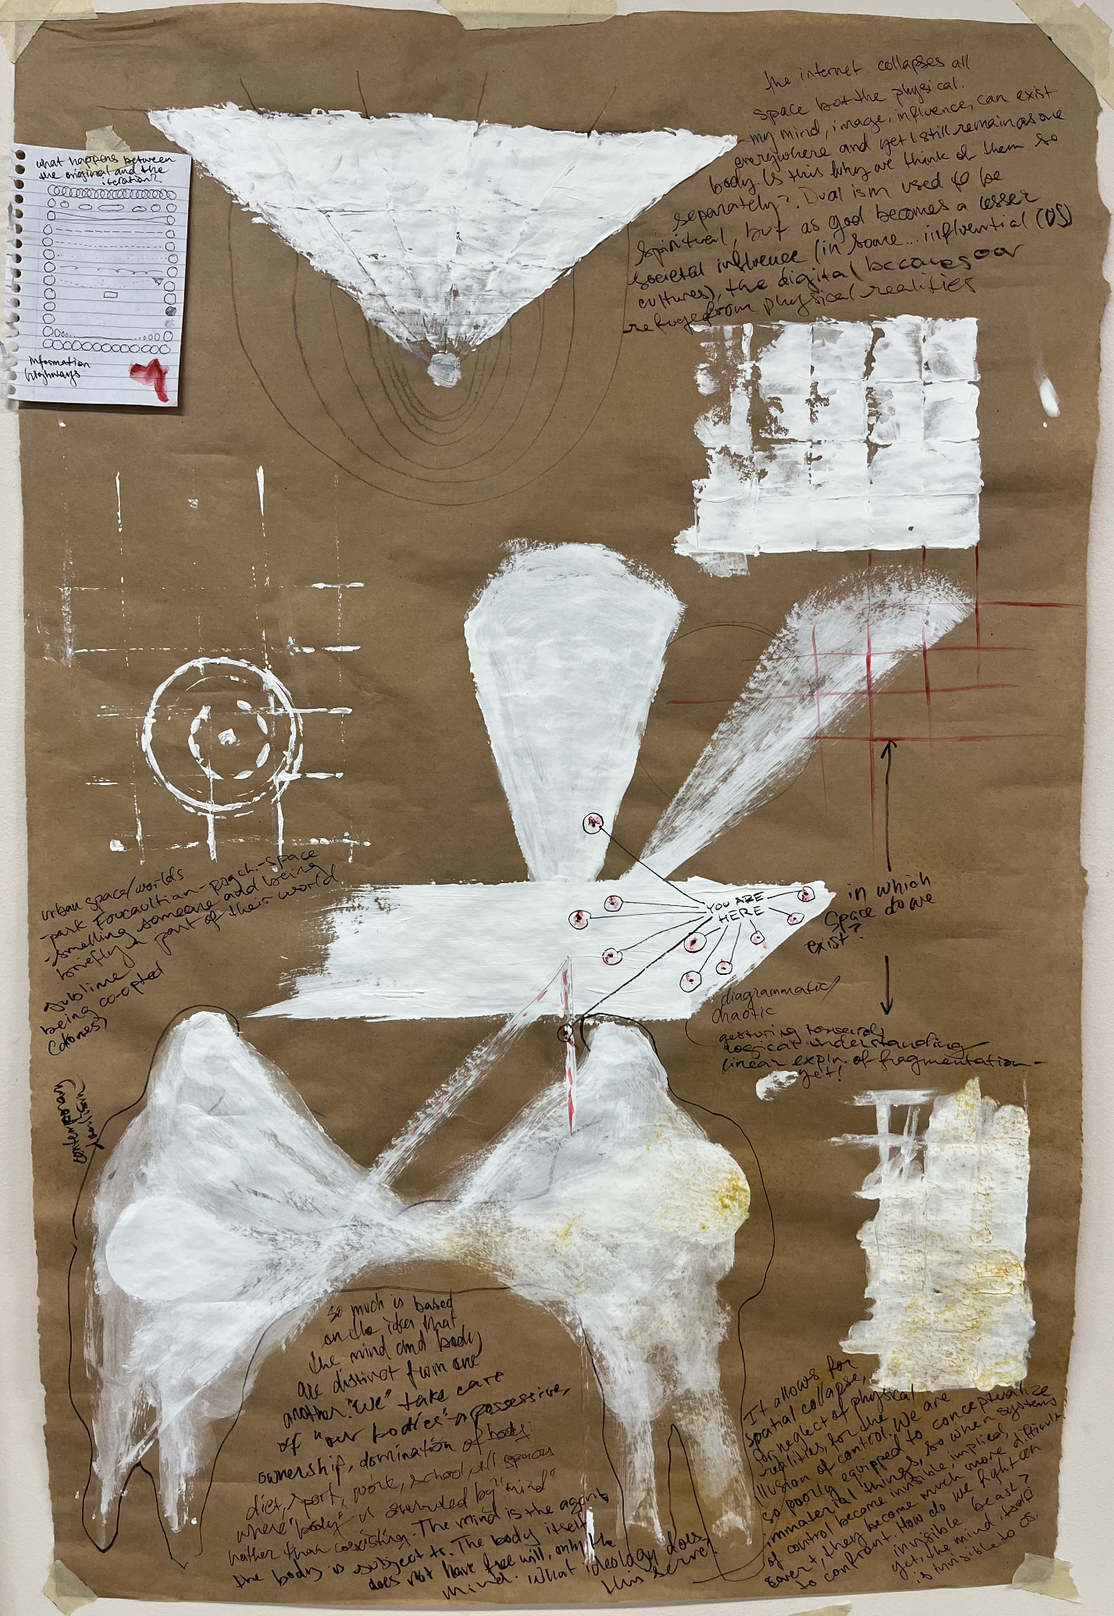 what happens between
the original and the
iteration?
information
highways
the internet collapses all
space but the physical.
my mind, image, influence, can exist
everywhere and yet I still remain as one
body. Is this why we think of them so
separately? Dualism used to be
spiritual, but as god becomes a lesser
societal influence (in some... influential (US)
cultures), the digital becomes our
refuge from physical realities
urban space/worlds
-park Foucaultian-psych-space
-smelling someone and being
briefly a part of their world
sublime
being co-opted
(drones)
YOU ARE
HERE
in which
space do we
exist?
diagrammatic/
chaotic
gesturing towards
logical understanding
linear expln. of fragmentation-
yet!
contemporary
so much is based
on the idea that
the mind and body
are distinct from one
another. "We" take care
of "our bodies" - a possessive,
ownership, domination of body:
diet, sport, work, school, all spaces
where "body" is surrounded by "mind"
rather than coexisting. The mind is the agent,
the body is subject to. The body itself
does not have free will, only the
mind. What ideology does
this serve?
It allows for
spatial collapse,
for neglect of physical
realities, for the
illusion of control. We are
so poorly equipped to conceptualize
immaterial things, so when systems
of control become invisible, implied,
they become much more difficult
to confront. How do we fight an
invisible bear?
yet, the mind itself
is invisible to us.